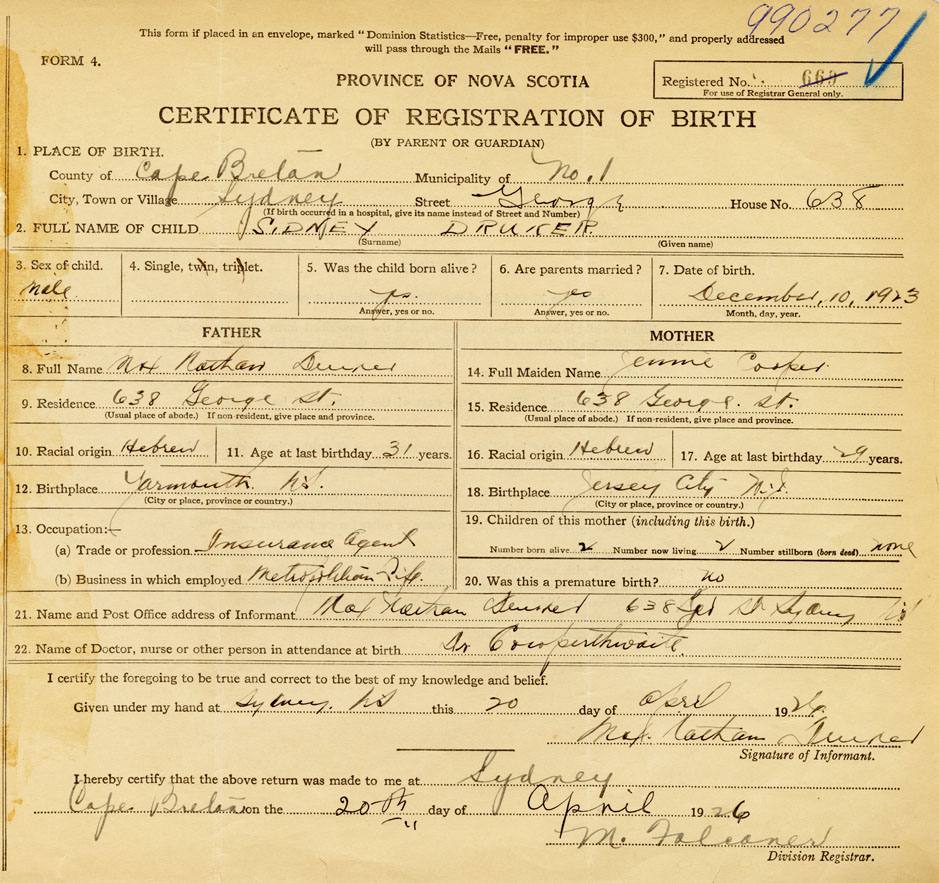 990277
This form if placed in an envelope, marked "Dominion Statistics—Free, penalty for improper use $300," and properly addressed
will pass through the Mails "FREE."
FORM 4.
PROVINCE OF NOVA SCOTIA
Registered No. 669
For use of Registrar General only.
CERTIFICATE OF REGISTRATION OF BIRTH
(BY PARENT OR GUARDIAN)
1. PLACE OF BIRTH.
County of Cape Breton Municipality of No. 1
City, Town or Village Sydney Street George House No. 638
(If birth occurred in a hospital, give its name instead of Street and Number)
2. FULL NAME OF CHILD SIDNEY DRUKER
(Surname) (Given name)
3. Sex of child. 4. Single, twin, triplet. 5. Was the child born alive? 6. Are parents married? 7. Date of birth.
Male. yes. yes December, 10, 1923
Answer, yes or no. Answer, yes or no. Month, day, year.
FATHER MOTHER
8. Full Name Max Nathan 14. Full Maiden Name Jennie Cooper.
9. Residence 638 George St. 15. Residence 638 George St.
(Usual place of abode.) If non-resident, give place and province. (Usual place of abode.) If non-resident, give place and province.
10. Racial origin Hebrew 11. Age at last birthday 31 years. 16. Racial origin Hebrew 17. Age at last birthday 29 years.
12. Birthplace Yarmouth N.S. 18. Birthplace Jersey City N.J.
(City or place, province or country.) (City or place, province or country.)
13. Occupation:— 19. Children of this mother (including this birth.)
(a) Trade or profession Insurance Agent Number born alive 2 Number now living 2 Number stillborn (born dead) none
(b) Business in which employed Metropolitian Life. 20. Was this a premature birth? no
21. Name and Post Office address of Informant Max Nathan 638 St Sydney NS
22. Name of Doctor, nurse or other person in attendance at birth Dr Cowperthwaite.
I certify the foregoing to be true and correct to the best of my knowledge and belief.
Given under my hand at Sydney NS this 20 day of April 1926
Max. Nathan
Signature of Informant.
I hereby certify that the above return was made to me at Sydney
Cape Breton on the 20th day of April 1926
M. Falconer
Division Registrar.